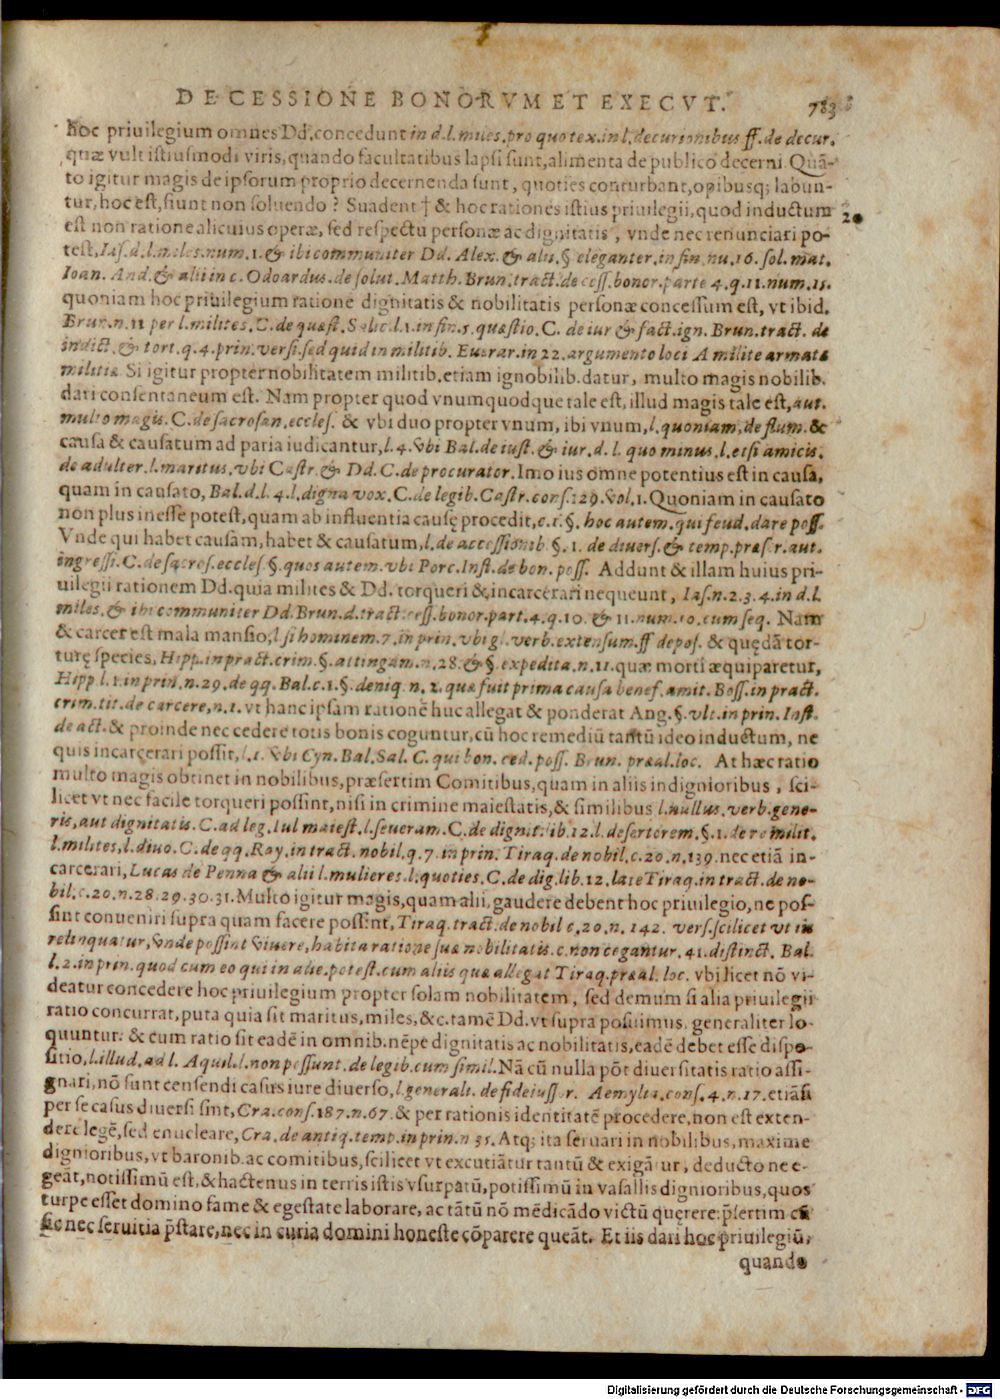 DE CESSIONE BONORVM ET EXECVT. 783
hoc priuilegium omnes Dd. concedunt in d. l. miles. pro quo tex. in l. decurionibus ff. de decur.
quæ vult istiusmodi viris, quando facultatibus lapsi sunt, alimenta de publico decerni. Quā-
to igitur magis de ipsorum proprio decernenda sunt, quoties conturbant, opibusq; labun-
tur, hoc est, fiunt non soluendo? Suadent † & hoc rationes istius priuilegii, quod inductum
20
est non ratione alicuius operæ, sed respectu personæ ac dignitatis, vnde nec renunciari po-
test, Ias. d. l. miles. num. 1. & ibi communiter Dd. Alex. & alii. § eleganter. in fin. nu. 16. sol. mat.
Ioan. And. & alii in c. Odoardus. de solut. Matth. Brun. tract. de cess. bonor. parte 4. q. 11. num. 11.
quoniam hoc priuilegium ratione dignitatis & nobilitatis personæ concessum est, vt ibid.
Brun. n. 11 per l. milites. C. de quæst. Salic. l. 1. in fin. 5. quæstio. C. de iur & fact. ign. Brun. tract. de
indict. & tort. q. 4. prin. versi. sed quid in militib. Euerar. in 22. argumento loci A milite armatæ
militiæ Si igitur propter nobilitatem militib. etiam ignobilib. datur, multo magis nobilib.
dari consentaneum est. Nam propter quod vnumquodque tale est, illud magis tale est, aut.
multo magis. C. de sacrosan. eccles. & vbi duo propter vnum, ibi vnum, l. quoniam, de flum. &
causa & causatum ad paria iudicantur, l. 4. vbi Bal. de iust. & iur. d. l. quo minus, l. etsi amicis.
de adulter. l. maritus. vbi Castr. & Dd. C. de procurator. Imo ius omne potentius est in causa,
quam in causato, Bal. d. l. 4. l. digna vox. C. de legib. Castr. cons. 129. vol. 1. Quoniam in causato
non plus inesse potest, quam ab influentia causę procedit, c. 1. §. hoc autem. qui feud. dare poss.
Vnde qui habet causam, habet & causatum, l. de accessionib. §. 1. de diuers. & temp. præs. r. aut.
ingressi. C. de sacros. eccles. §. quos autem. vbi Porc. Inst. de bon. poss. Addunt & illam huius pri-
uilegii rationem Dd. quia milites & Dd. torqueri & incarcerari nequeunt, Ias. n. 2. 3. 4. in d. l.
miles. & ibi communiter Dd. Brun. d. tract. cess. bonor. part. 4. q. 10. & 11. num. 10. cum seq. Nam
& carcer est mala mansio, l si hominem. 7. in prin. vbi gl. verb. extensum. ff depos. & quędā tor-
turę species, Hipp. in pract. crim. §. attingam. n. 28. & §. expedita. n. 11. quæ morti æquiparetur,
Hipp l. 1. in prin. n. 29. de qq. Bal. c. 1. §. deniq. n. 2. quæ fuit prima causa benef. amit. Boss. in pract.
crim. tit. de carcere, n. 1. vt hanc ipsam rationē huc allegat & ponderat Ang. §. vlt. in prin. Inst.
de act. & proinde nec cedere totis bonis coguntur, cū hoc remediū tantū ideo inductum, ne
quis incarcerari possit, l. 1. vbi Cyn. Bal. Sal. C. qui bon. ced. poss. Brun. præal. loc. At hæc ratio
multo magis obtinet in nobilibus, præsertim Comitibus, quam in aliis indignioribus, sci-
licet vt nec facile torqueri possint, nisi in crimine maiestatis, & similibus l. nullus. verb. gene-
ris, aut dignitatis. C. ad leg. Iul maiest. l. seueram. C. de dignit. lib. 12. l. desertorem. §. 1. de re milit.
l. milites, l. diuo. C. de qq. Ray. in tract. nobil. q. 7. in prin. Tiraq. de nobil. c. 20. n. 139. nec etiā in-
carcerari, Lucas de Penna & alii l. mulieres. l. quoties. C. de dig. lib. 12. late Tiraq. in tract. de no-
bil. c. 20. n. 28. 29. 30. 31. Multo igitur magis, quam alii, gaudere debent hoc priuilegio, ne pos-
sint conueniri supra quam facere possint, Tiraq. tract. de nobil c. 20. n. 142. vers. scilicet vt iis
relinquatur, vnde possint viuere, habita ratione suæ nobilitatis. c. non cogantur. 41. distinct. Bal.
l. 2. in prin. quod cum eo qui in alie. potest. cum aliis quæ allegat Tiraq. præal. loc. vbi licet nō vi-
deatur concedere hoc priuilegium propter solam nobilitatem, sed demum si alia priuilegii
ratio concurrat, puta quia sit maritus, miles, &c. tamē Dd. vt supra posuimus, generaliter lo-
quuntur: & cum ratio sit eadē in omnib. nēpe dignitatis ac nobilitatis, eadē debet esse dispo-
sitio, l. illud. ad l. Aquil. l. non possunt. de legib. cum simil. Nā cū nulla pōt diuersitatis ratio assi-
gnari, nō sunt censendi casus iure diuerso, l. generali. de fideiussor. Aemylia. cons. 4. n. 17. etiāsi
per se casus diuersi sint, Cra. cons. 187. n. 67. & per rationis identitatē procedere, non est exten-
dere legē, sed enucleare, Cra. de antiq. temp. in prin. n 35. Atq; ita seruari in nobilibus, maxime
dignioribus, vt baronib. ac comitibus, scilicet vt excutiātur tantū & exigātur, deducto ne e-
geāt, notissimū est, & hactenus in terris istis vsurpatū, potissimū in vasallis dignioribus, quos
turpe esset domino fame & egestate laborare, ac tātū nō mēdicādo victū quęrere: p̄sertim cū
sic nec seruitia p̄stare, nec in curia domini honeste cōparere queāt. Et iis dari hoc priuilegiū,
quando
Digitalisierung gefördert durch die Deutsche Forschungsgemeinschaft - DFG